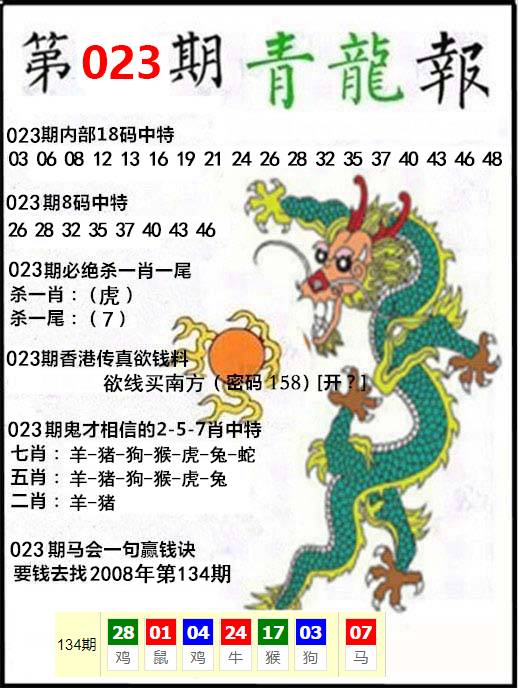 第023期青龍報
023期内部18码中特
03 06 08 12 13 16 19 21 24 26 28 32 35 37 40 43 46 48
023期8码中特
26 28 32 35 37 40 43 46
023期必绝杀一肖一尾
杀一肖：（虎）
杀一尾：（7）
023期香港传真欲钱料
欲线买南方（密码158）[开？]
023期鬼才相信的2-5-7肖中特
七肖：羊-猪-狗-猴-虎-兔-蛇
五肖：羊-猪-狗-猴-虎-兔
二肖：羊-猪
023期马会一句赢钱诀
要钱去找2008年第134期
134期 28 01 04 24 17 03 07
鸡 鼠 鸡 牛 猴 狗 马